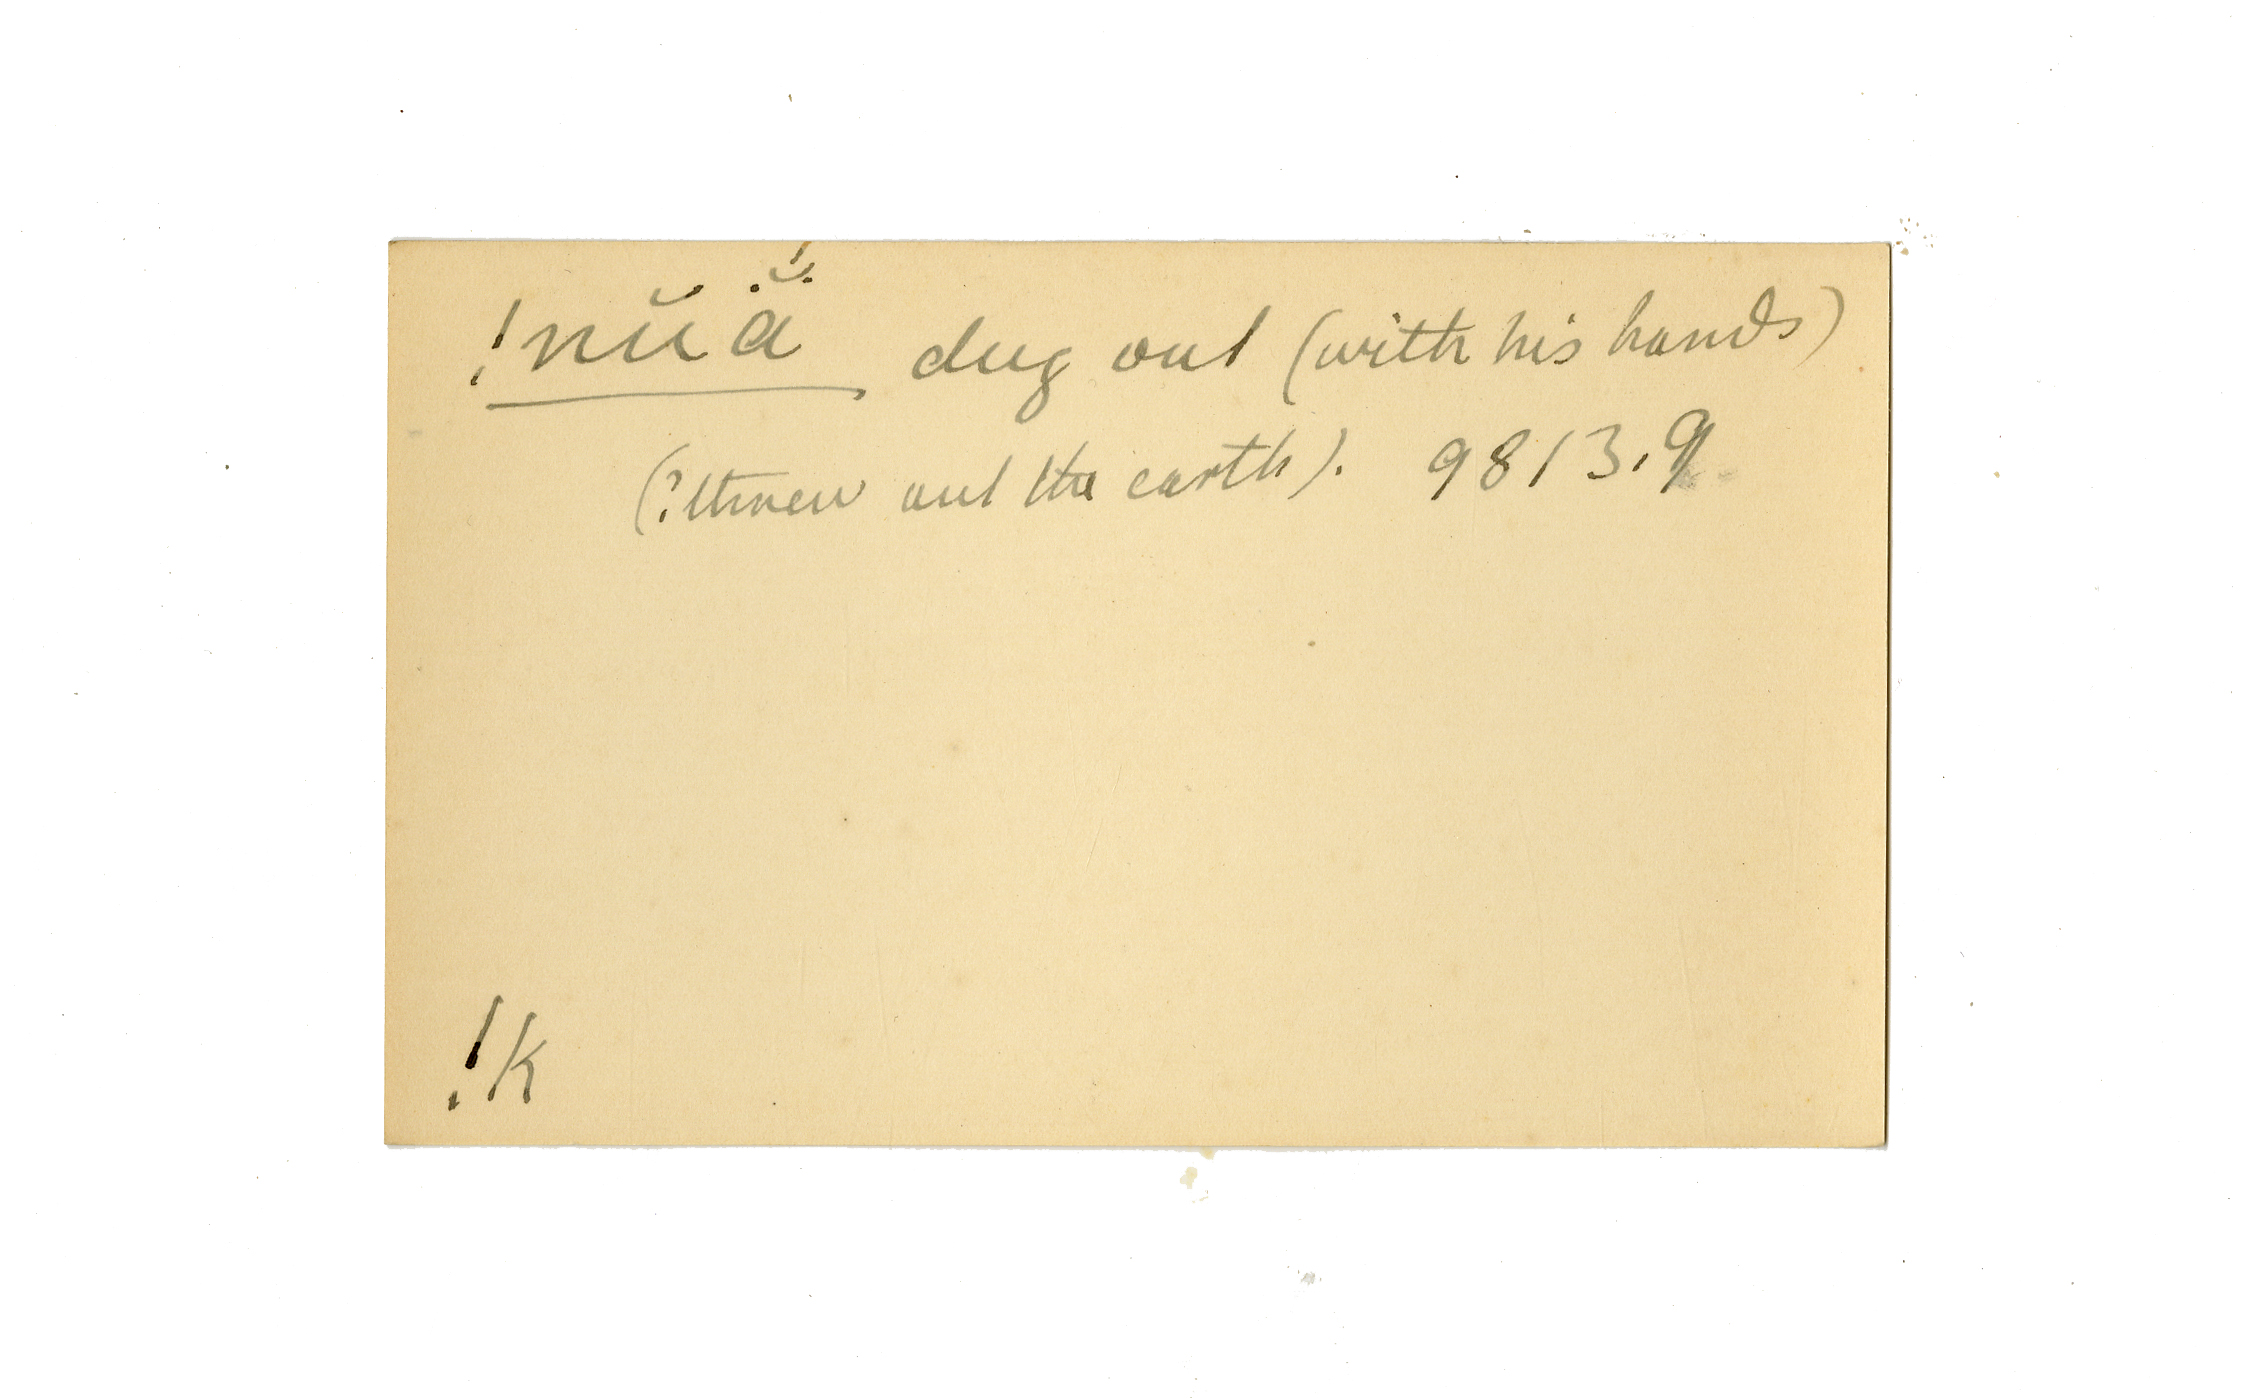 !nŭä̆́ dug out (with his hands)
(? threw out the earth). 9813.9
!k